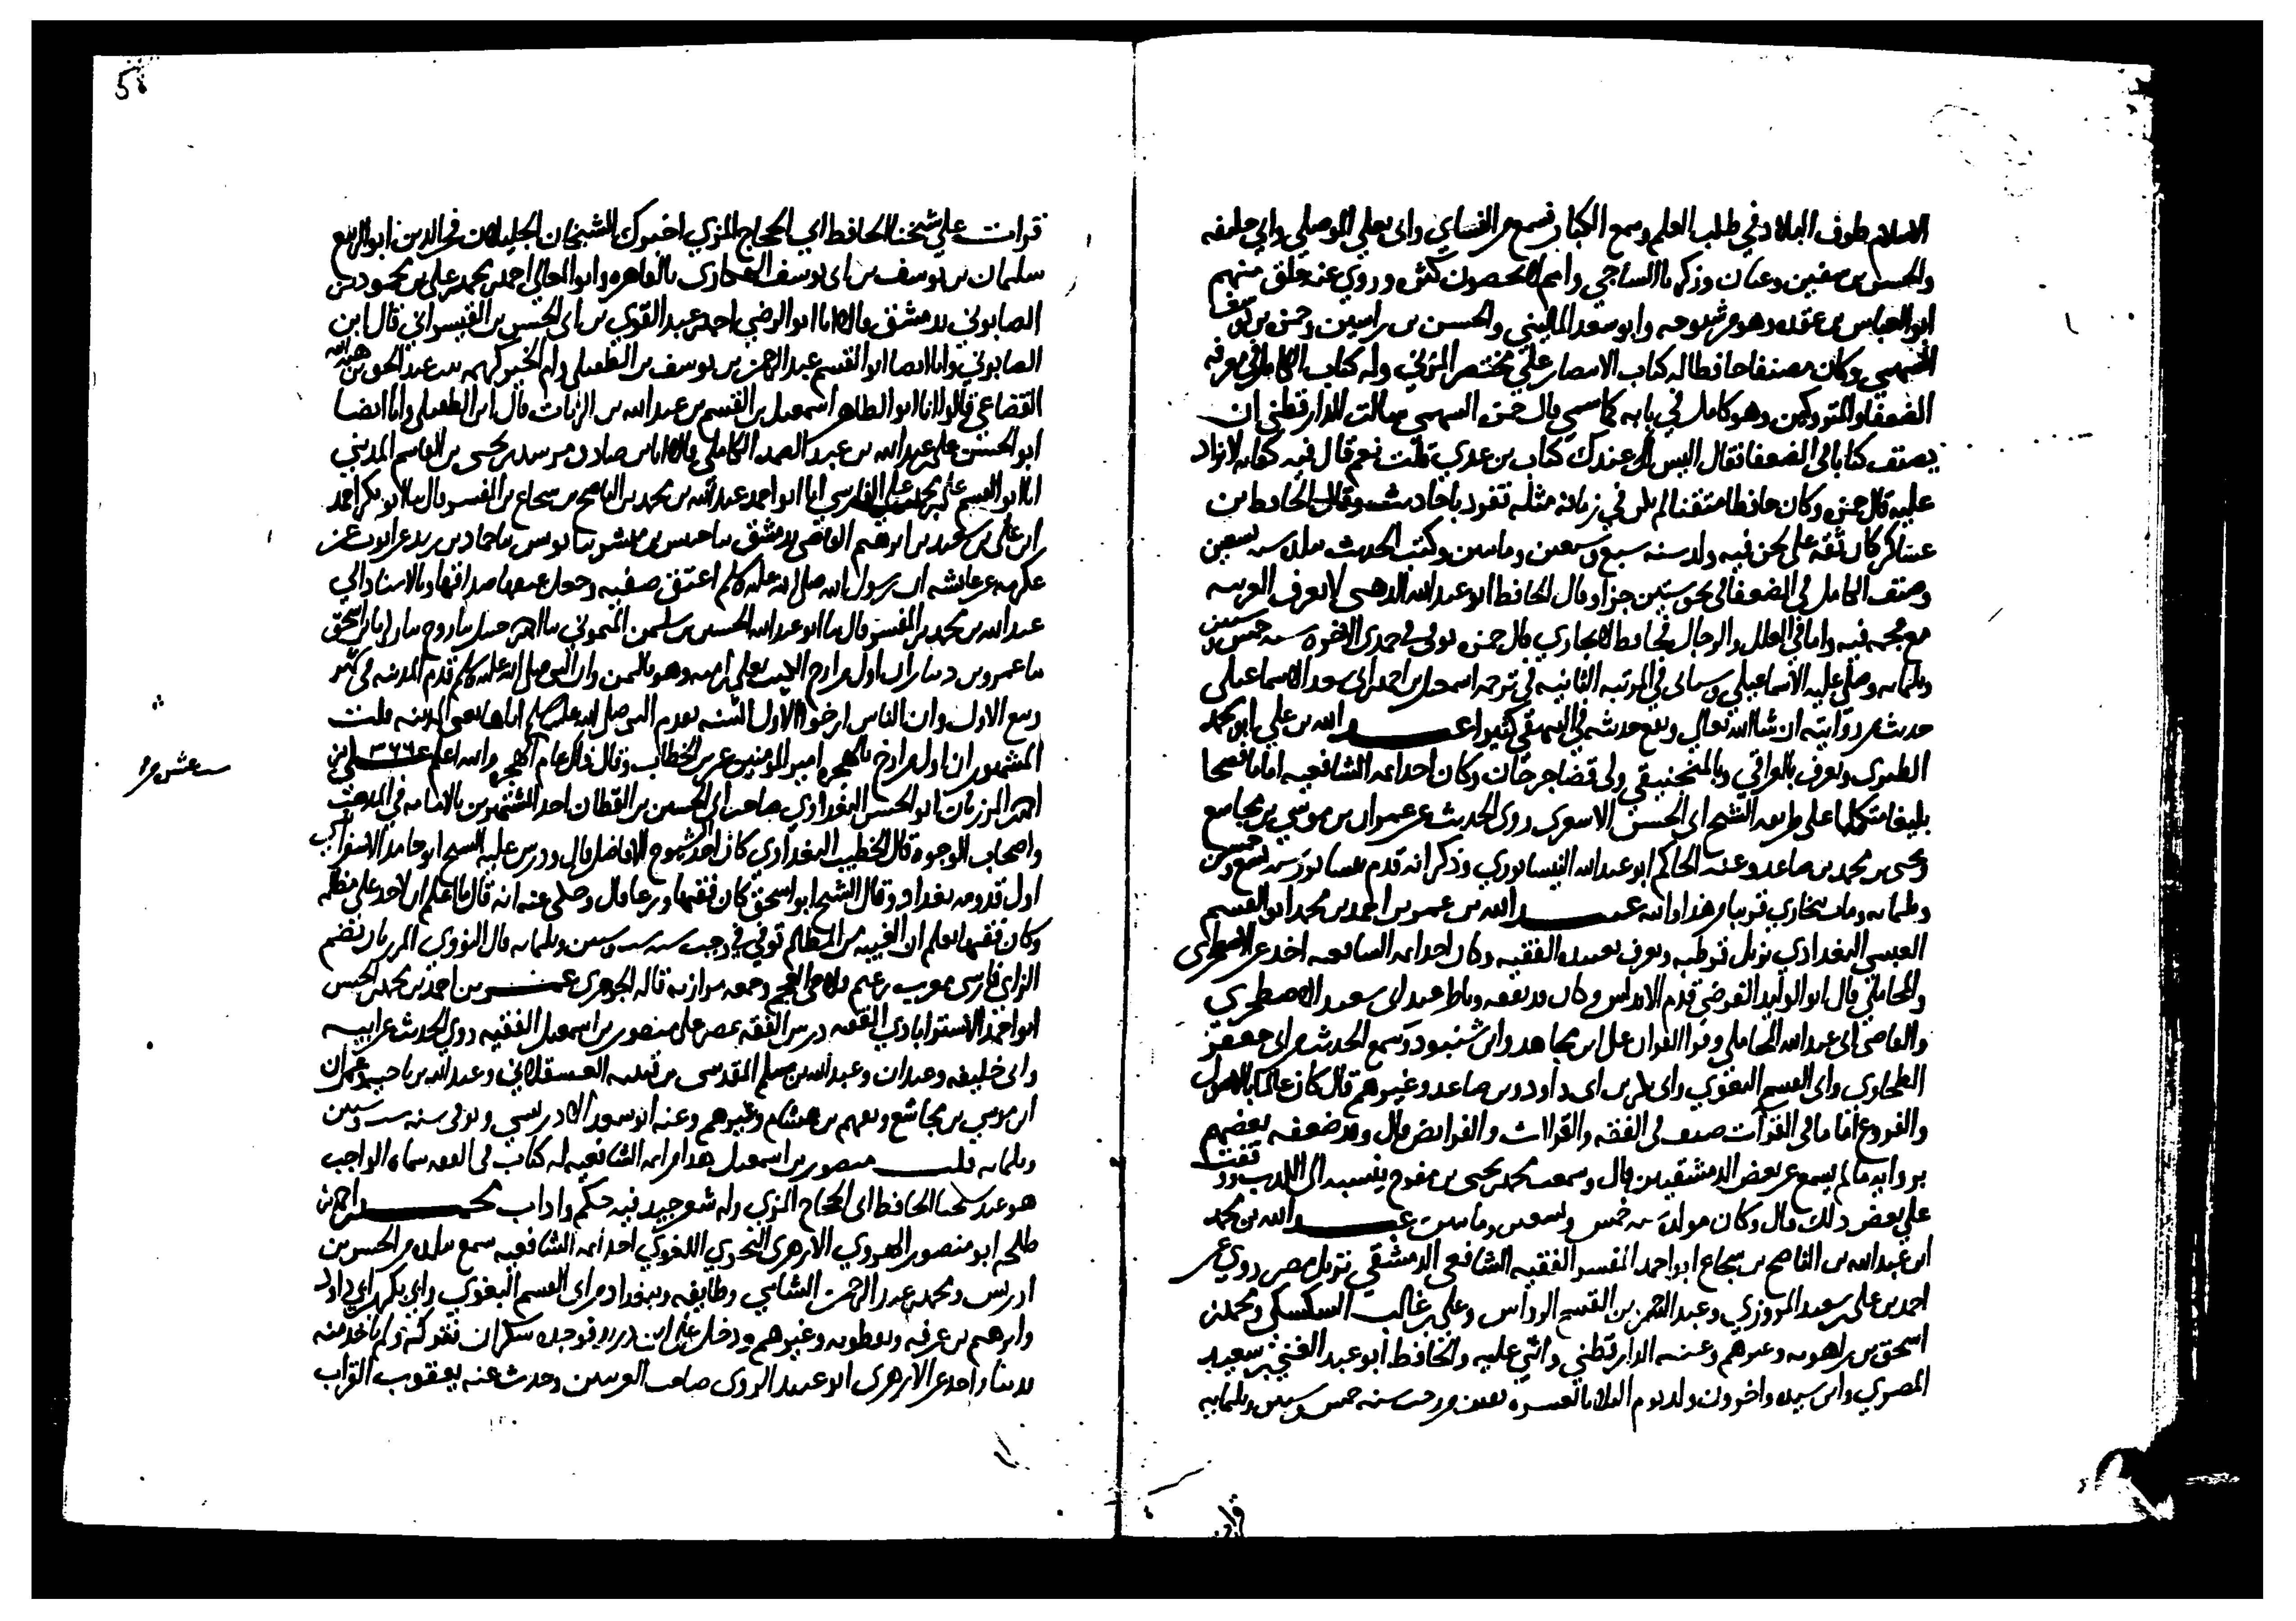 الاسلام طوف البلاد في طلب العلم وسمع الكبار فسمع من النساي وابي يعلي الموصلي وابي خليفه
والحسن بن سفين وعبدان وزكريا الساجي وامم لا يحصون كثرة وروي عنه خلق منهم
ابو العباس بن عقده وهو من شيوخه وابو سعد الماليني والحسن بن رامين وحمزه بن يوسف
السهمي وكان مصنفا حافظا له كتاب الانتصار علي مختصر المزني وله كتاب الكامل في معرفه
الضعفا والمتروكين وهو كامل في بابه كما سمي قال حمزه السهمي سالت الدارقطني ان
يصنف كتابا في الضعفا فقال اليس عندك كتاب بن عدي قلت نعم قال فيه كفايه لا يزاد
عليه قال حمزه وكان حافظا متقنا لم يكن في زمانه مثله تفرد باحاديث وقال الحافظ ابن
عساكر كان ثقه علي لحن فيه ولد سنه سبع وسبعين وماتين وكتب الحديث ببلده سنه تسعين
وصنف الكامل في الضعفا في نحو ستين جزا وقال الحافظ ابو عبد الله الذهبي لا يعرف العربيه
مع عجمه فيه واما في العلل والرجال فحافظ لا يجاري قال حمزه توفي في جمدي الاخره سنه خمس وستين
وثلثمايه وصلي عليه الاسماعيلي وسياتي في المرتبه الثانيه في ترجمه اسمعيل بن احمد ابي سعد الاسماعيلي
حديث من روايته ان شا الله تعالي ويقع حديثه في البيهقي كثيرا عبد الله بن علي ابو محمد
الطبري ويعرف بالعراقي وبالمنجنيقي ولي قضا جرجان وكان احد ايمه الشافعيه اماما فصيحا
بليغا متكلما علي طريقه الشيخ ابي الحسن الاشعري روي الحديث عن عمران بن موسي بن مجاشع
ويحيي بن محمد بن صاعد وعنه الحاكم ابو عبد الله النيسابوري وذكر انه قدم نيسابور سنه تسع وخمسين
وثلثمايه ومات ببخاري قريبا من هذا والله عبيد الله بن عمر بن احمد بن محمد ابو القسم
العبسي البغدادي نزيل قرطبه ويعرف بعبيد الفقيه وكان احد ايمه الشافعيه اخذ عن الاصطخري
والمحاملي قال ابو الوليد الفرضي قدم الاندلس وكان قد تفقه وناظر عند ابي سعيد الاصطخري
والقاضي ابي عبد الله المحاملي وقرا القران علي ابن مجاهد وابن شنبود وسمع الحديث من ابي جعفر
الطحاوي وابي القسم البغوي وابي بكر بن ابي داود وبن صاعد وغيرهم قال كان عالما بالاصول
والفروع اماما في القراآت صنف في الفقه والقراات والفرايض قال وقد ضعفه بعضهم
بروايه ما لم يسمع عن بعض الدمشقيين قال وسمعت محمد بن يحيي بن مفرج ينسبه الي الكذب ووقفت
علي بعض ذلك قال وكان مولده سنه خمس وتسعين وماتين عبد الله بن محمد
ابن عبد الله بن الناصح بن شجاع ابو احمد المفسر الفقيه الشافعي الدمشقي نزيل مصر روي عن
احمد بن علي بن سعيد المروزي وعبد الرحمن بن القسم الرواس وعلي بن غالب السكسكي ومحمد بن
اسحق بن راهويه وغيرهم وعنه الدارقطني واثني عليه والحافظ ابو عبد الغني بن سعيد
المصري وابن سيده واخرون ولد يوم الثلاثا لعشره بقين من رجب سنه خمس وستين وثلثمايه
قرات
قرات علي شيخنا الحافظ ابي الحجاج المزي اخبرك الشيخان الجليلان فخر الدين ابو الربيع
سليمان بن يوسف بن ابي يوسف الهكاري بالقاهره وابو المعالي احمد بن محمد بن علي بن محمود بن
الصابوني بدمشق قالا انا ابو الرضي احمد بن عبد القوي بن ابي الحسن بن القيسراني قال ابن
الصابوني وانا ايضا ابو القسم عبد الرحمن بن يوسف بن الطفيلي وام الخير كريمه بنت عبد الحق بن هبة الله
القضاعي قالوا انا ابو الطاهر اسمعيل بن القسم بن عبد الله بن الزيات قال ابن الطفيلي وانا ايضا
ابو الحسن علي بن هبة الله بن عبد الصمد الكاملي قالا انا بن صادق مرشد بن يحيي بن القاسم المديني
انا ابو القسم علي بن محمد بن علي الفارسي انا ابو احمد عبد الله بن محمد بن الناصح بن شجاع بن المفسر قال ثنا ابو بكر احمد
ابن علي بن سعيد بن ابرهيم القاضي بدمشق ثنا حبيس بن مبشر ثنا يونس ثنا حماد بن زيد عن ايوب عن
عكرمه عن عايشه ان رسول الله صلي الله عليه وسلم اعتق صفيه وجعل عتقها صداقها وبالاسناد الي
عبد الله بن محمد بن المفسر قال ثنا ابو عبد الله الحسين بن سليمن
ثنا عمرو بن دينار ان اول من ارخ الكتب يعلي بن اميه وهو باليمن وان النبي صلي الله عليه وسلم قدم المدينه في شهر
ربيع الاول وان الناس ارخوا لاول السنه بقدم النبي صلي الله عليه وسلم اياها يعني المدينه قلت
المشهور ان اول من ارخ بالهجره امير المؤمنين عمر بن الخطاب وقال ذلك عام الهجره والله اعلم ٣٦٦ علي بن
احمد المرزبان ابو الحسن البغدادي صاحب ابي الحسين بن القطان احد المشهورين بالامامه في المذهب
واصحاب الوجوه قال الخطيب البغدادي كان احد الشيوخ الافاضل قال ودرس عليه الشيخ ابو حامد الاسفراييني
اول قدومه بغداد وقال الشيخ ابو اسحق كان فقيها ورعا قال وحكي عنه انه قال ما اعلم ان لاحد علي مظلمه
وكان فقيها يعلم ان الغيبه من المظالم توفي في رجب سنه ست وستين وثلثمايه قال النووي المرزبان بضم
الزاي فارسي معرب زعيم فلاحي العجم وجمعه مرازبه قاله الجوهري عمر بن احمد بن محمد بن الحسن
ابو احمد الاستراباذي الفقيه درس الفقه بمصر علي منصور بن اسمعيل الفقيه روي الحديث عن ابيه
وابي خليفه وعبدان وعبد الله بن مسلم المقدسي بن قتيبه العسقلاني وعبد الله بن ناجيه وعمران
ابن موسي بن مجاشع وبهم بن هشام وغيرهم وعنه ابو سعد الادريسي وتوفي سنه ست وستين
وثلثمايه قلت منصور بن اسمعيل هذا من ايمه الشافعيه له كتاب في الفقه سماه الواجب
هو عند شيخنا الحافظ ابي الحجاج المزي وله شعر جيد فيه حكم واداب محمد بن احمد بن
طلحه ابو منصور الهروي الازهري النحوي اللغوي احد ايمه الشافعيه سمع ببلده من الحسين بن
ادريس ومحمد بن عبد الرحمن الشامي وطايفه وببغداد من ابي القسم البغوي وابي بكر بن ابي داود
وابرهيم بن عرفه ونفطويه وغيرهم ودخل علي ابن دريد فوجده سكران فتركه ولم ياخذ منه
دينا واخذ عن الازهري ابو عبيد الهروي صاحب الغريبين وحدث عنه يعقوب القراب